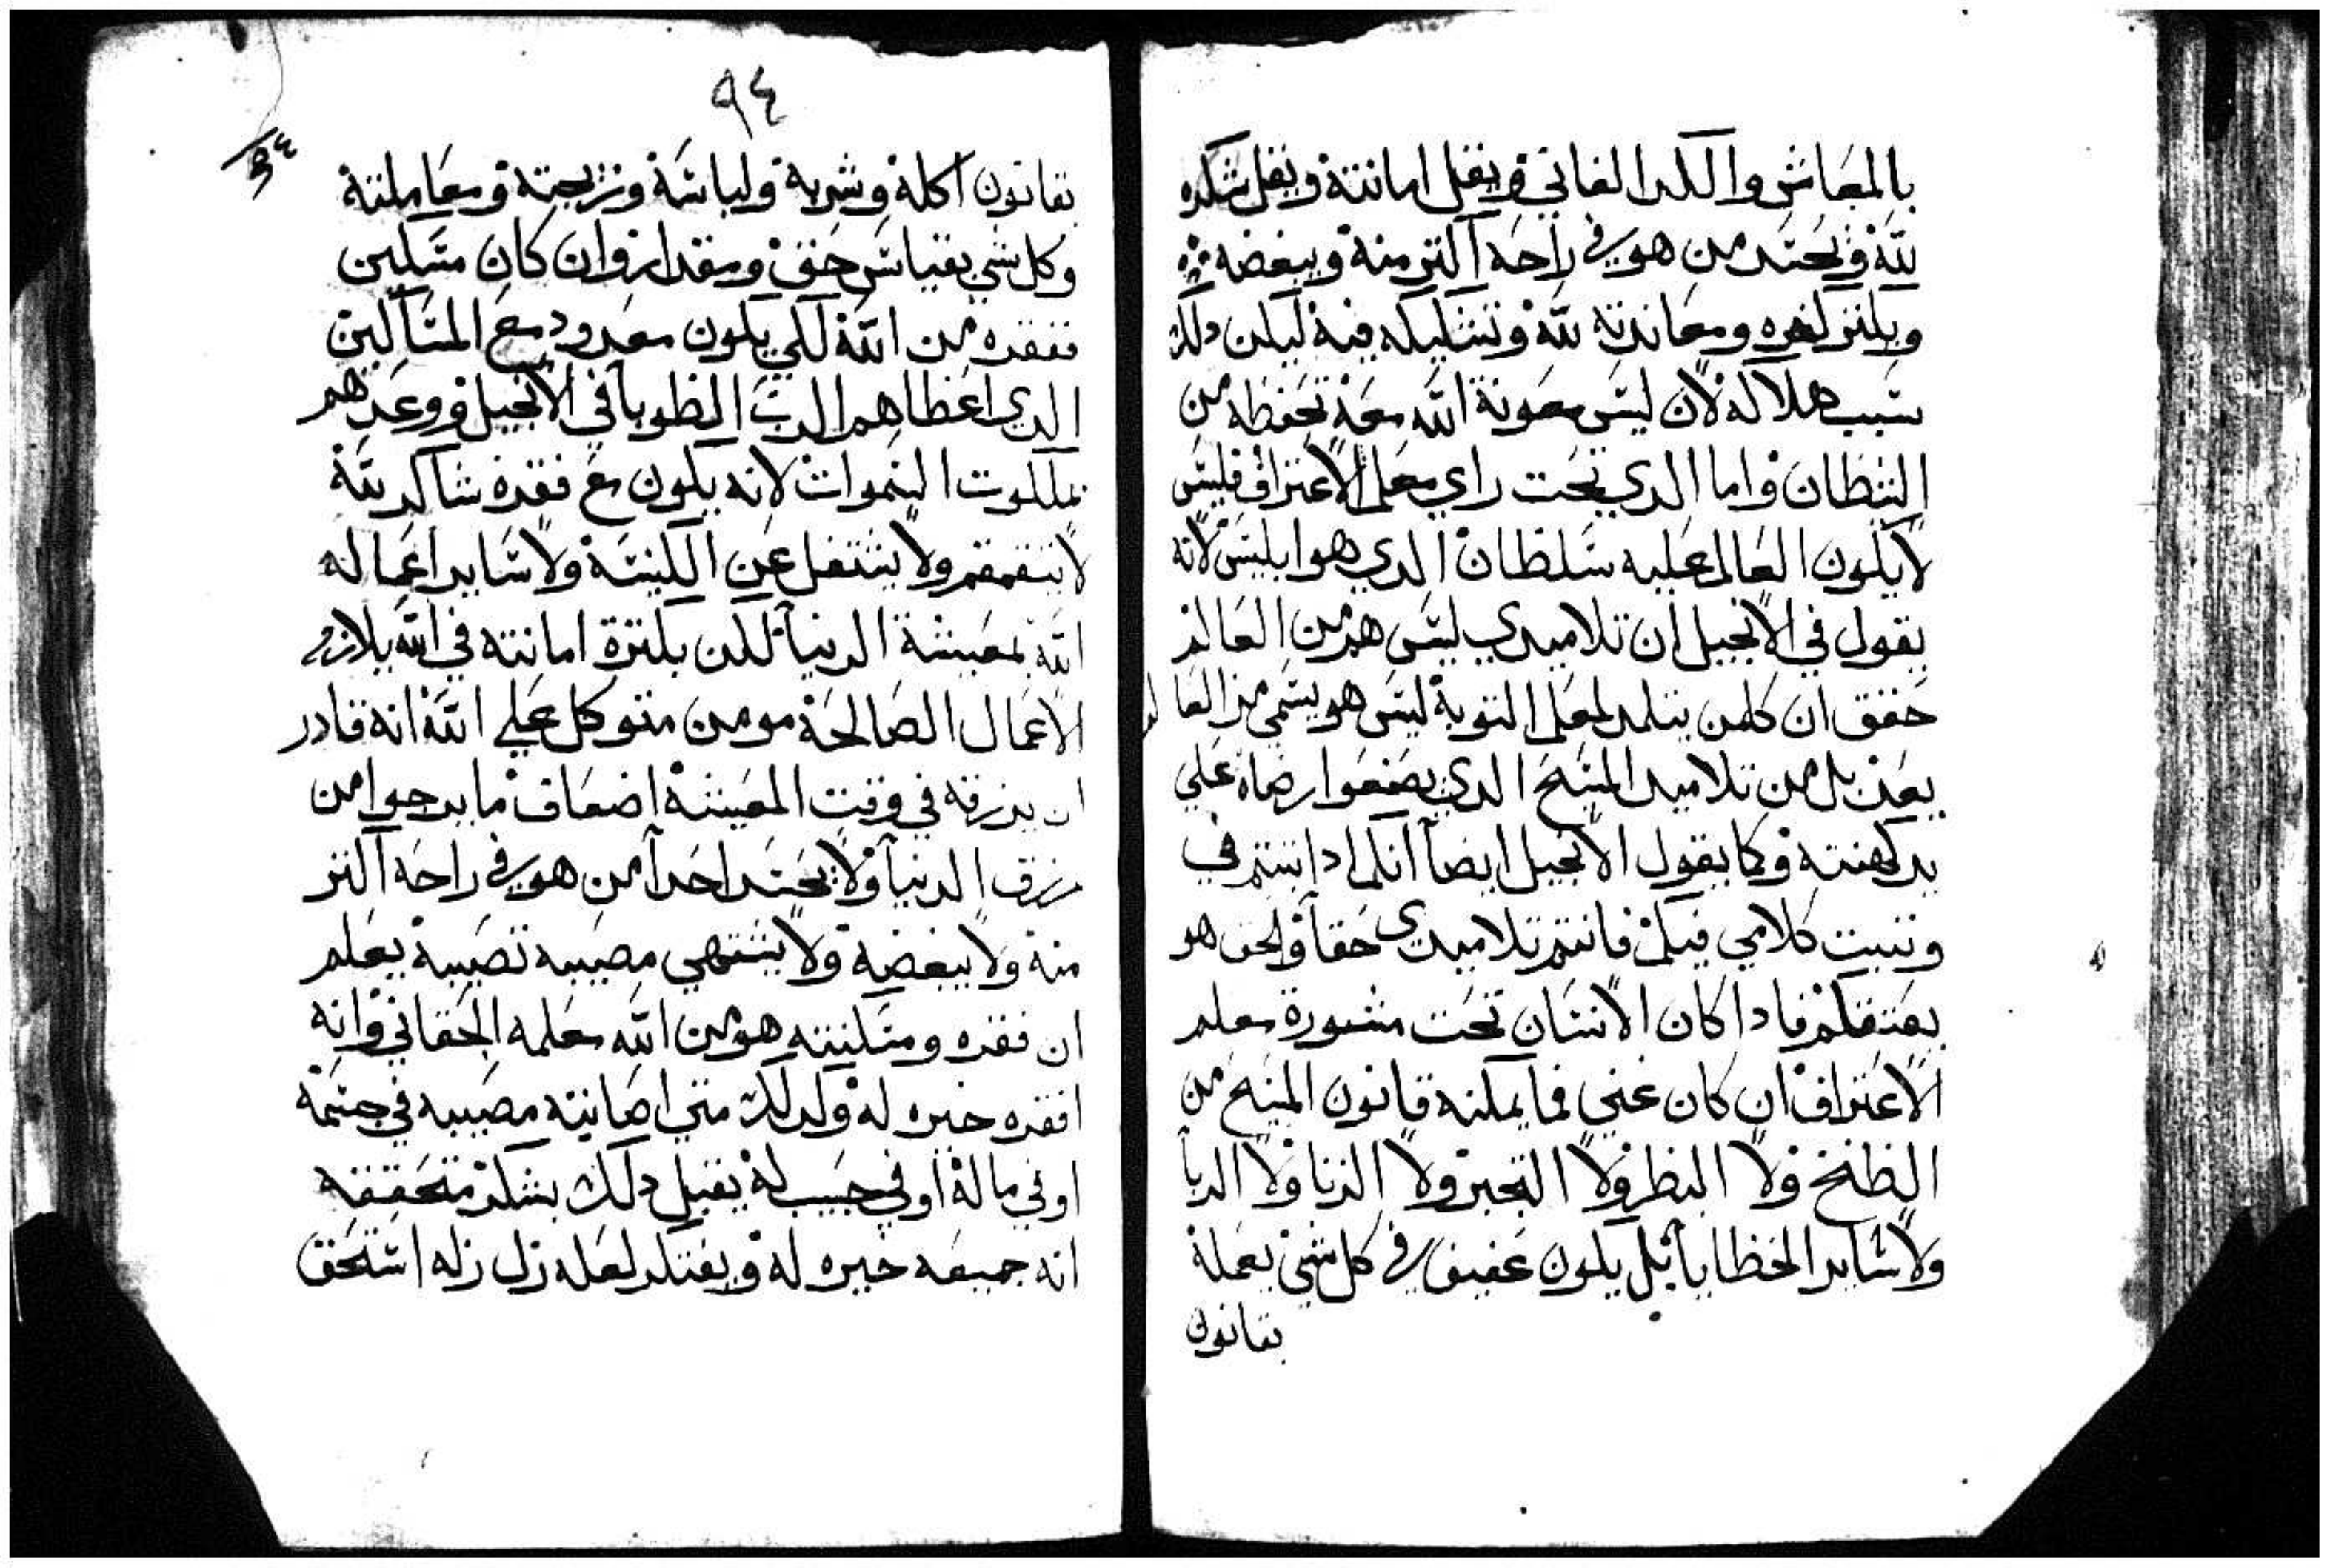 بالمعاش والكدر الفاني ويقل امانته ويقل شكره
لله ويحسد من هو في راحه اكتر منه ويبغضه
ويكتر كفره ومعاندته لله وتشكيكه فيه ليكن دلك
سبب هلاكه لان ليس معونة الله معه تحفظه من
الشظان واما الدي تحت راي معلم الاعتراف فليس
لا يكون العالم عليه سلظان الدي هو ابليس لانه
يقول في الانجيل ان تلاميدي ليس هم من العالم
حقق ان كلمن يتلمد لمعلم التوبة ليس هو يسمي من العالم
بعد بل من تلاميد المسيح الدي يصنعوا رضاه علي
يد كهنته وكما يقول الانجيل ايضا انكم ادا تبتم في
وتبت كلامي فيكم فانتم تلاميدي حقا والحق هو
يعتقكم فادا كان الانسان تحت مشورة معلم
الاعتراف ان كان غني فما يمكنه قانون المسيح من
الظمع ولا البطر ولا التجبر ولا الزنا ولا الربا
ولا ساير الخظايا بل يكون عفيف في كل شي يعمله
بقانون
٩٤
بقانون اكله وشربه ولباسه وتزيجته ومعاملته
وكل شي بقياس حق ومقدار وان كان مسكين
ففقره من الله لكي يكون معدود مع المساكين
الدي اعظاهم الرب الظوبا في الانجيل ووعدهم
بملكوت السموات لانه يكون مع فقره شاكر لله
لا يتقمقم ولا يشتغل عن الكنيسة ولا ساير اعماله
الله لمعيشة الدنيا لكن بكترة امانته في الله يلازم
الاعمال الصالحة مومن متوكل علي الله انه قادر
ان يرزقه في وقت المعيشة اضعاف ما يرجوا من
رزق الدنيا ولا يحسد احدا من هو في راحه اكتر
منه ولا يبغضه ولا يشتهي مصيبه تصيبه يعلم
ان فقره ومسكنته هو من الله معلمه الحقاني وانه
افقره خيره له ولدلك متي اصابته مصيبه في جسمه
او في ماله او في حبيب له يقبل دلك بشكر متحققه
انه جميعه خيره له ويفتكر لعله زل زله استحق